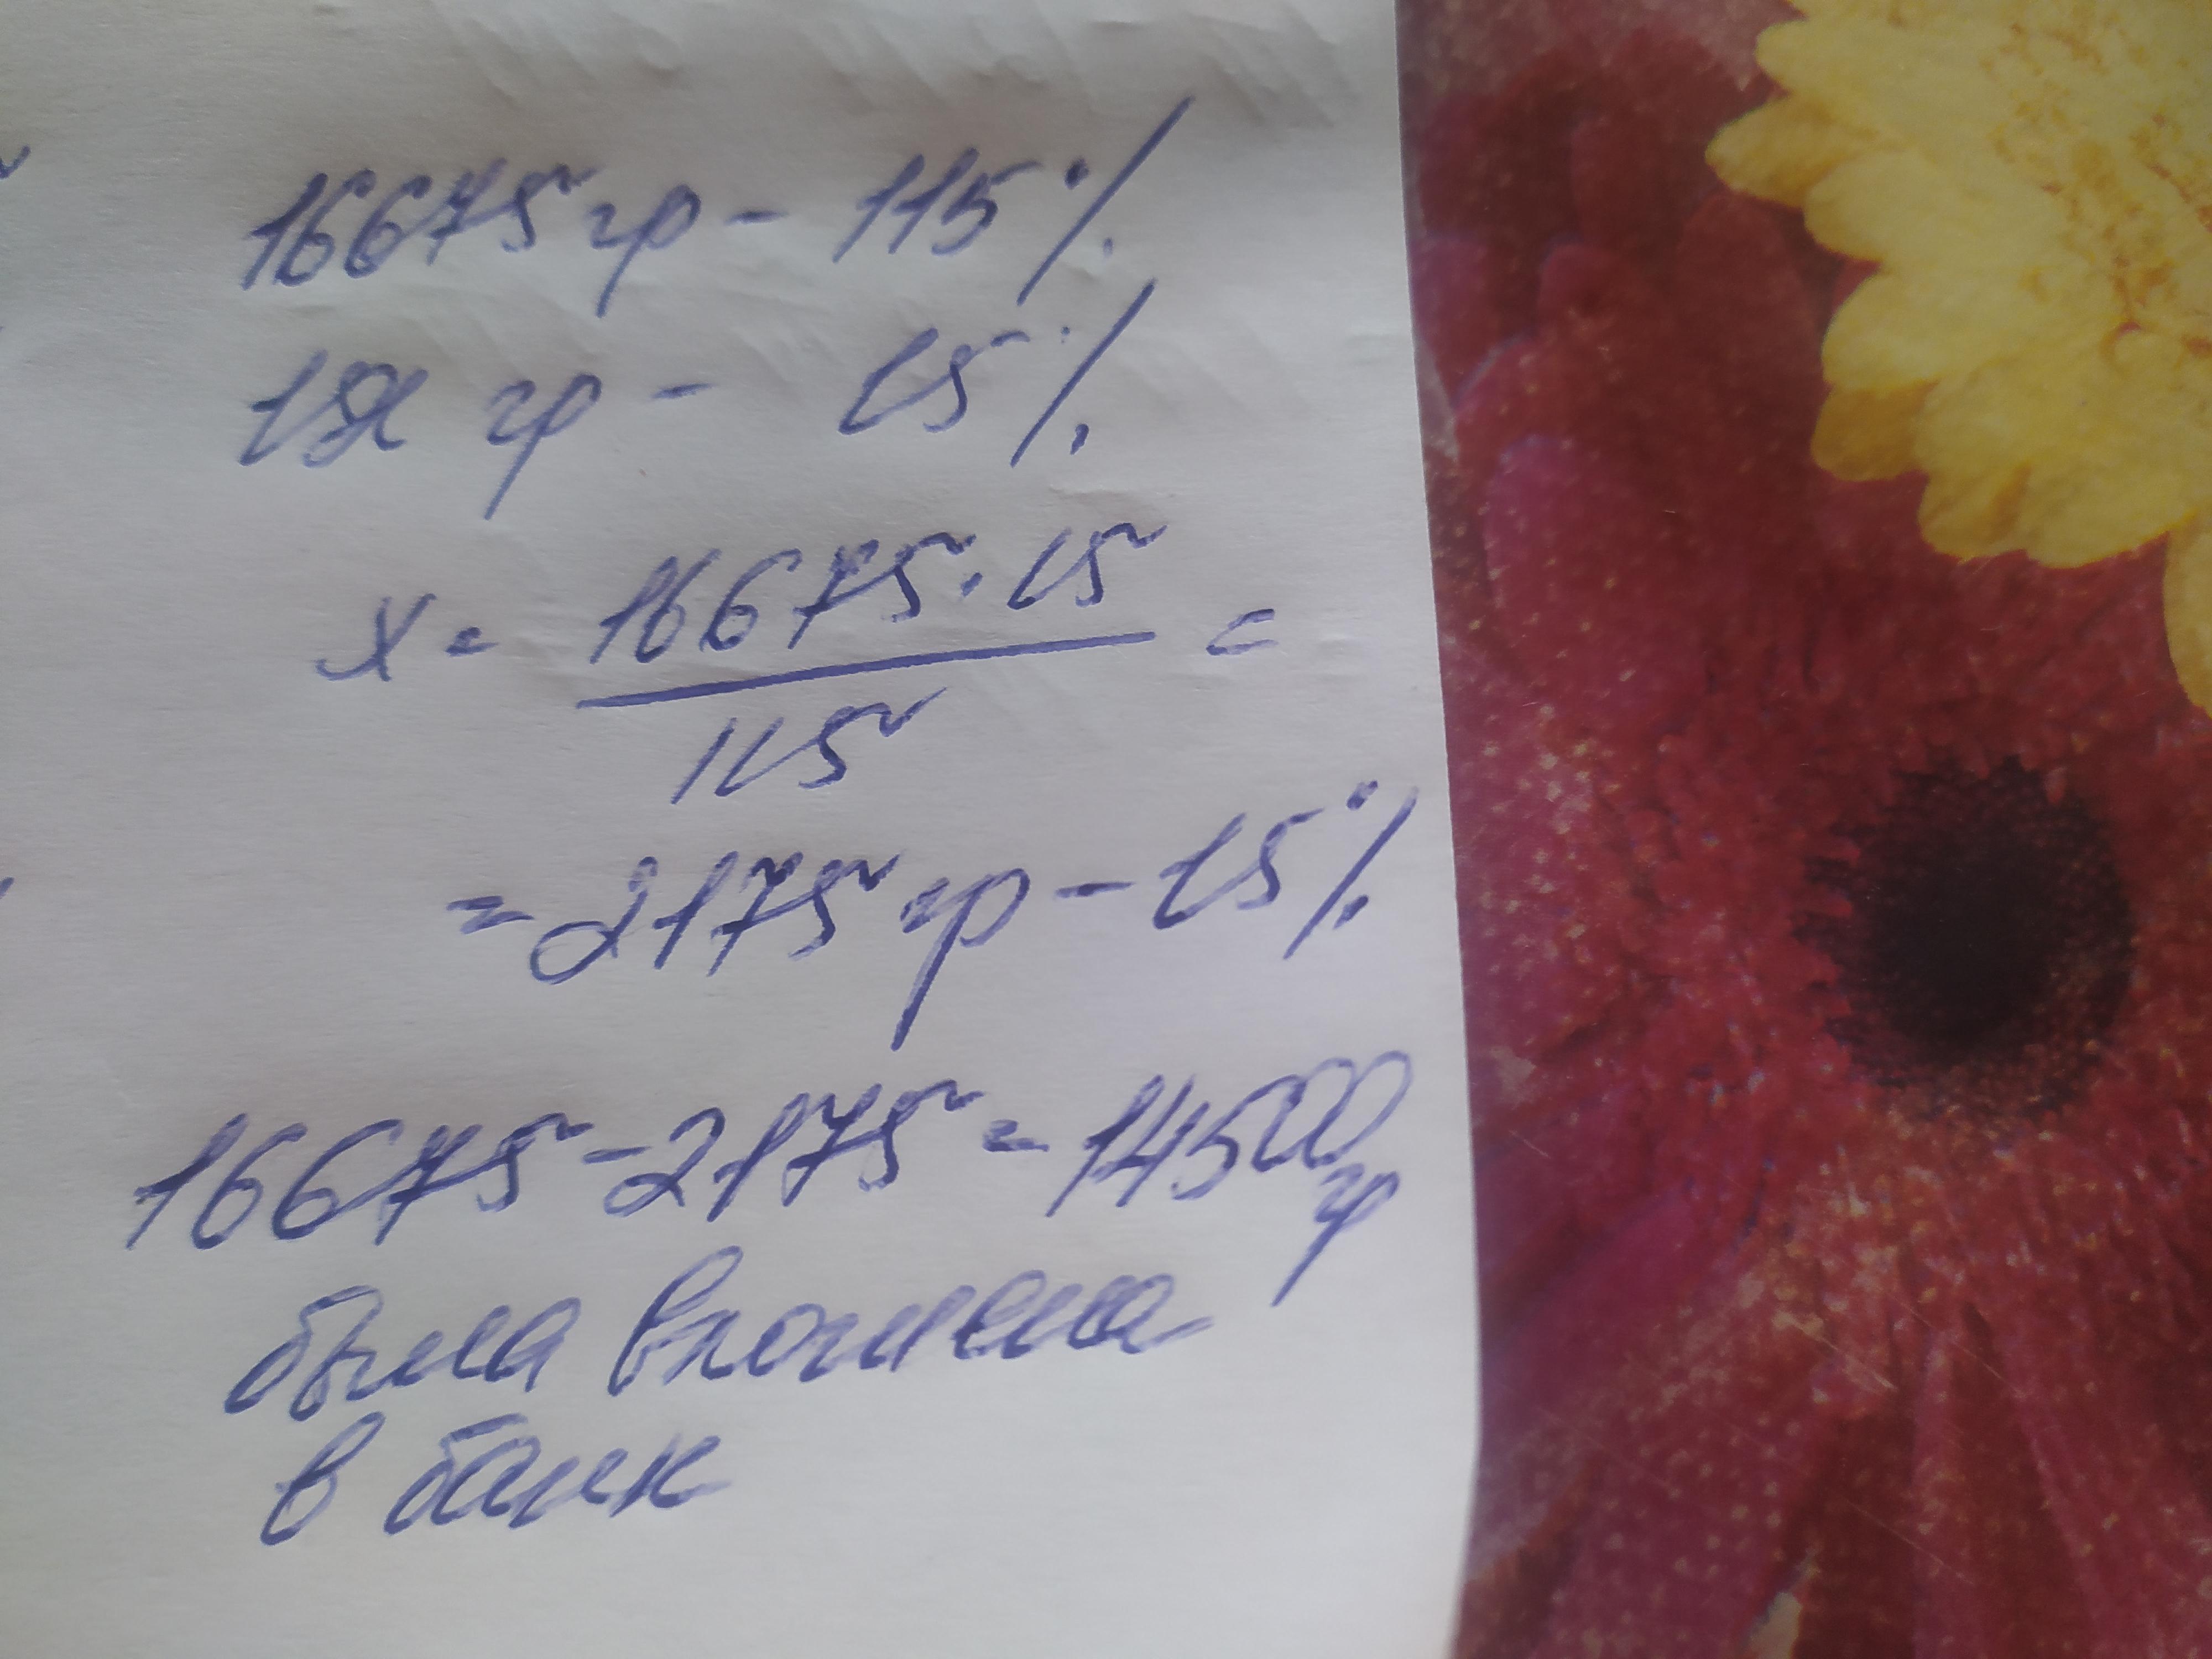 16675 гр - 115%
х гр - 15%
x = 16675·15 / 115 =
= 2175 гр - 15%
16675 - 2175 = 14500 гр
была вложена
в банк